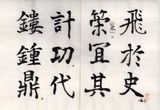 飛於史
策宜其
計功代
鏤鍾鼎